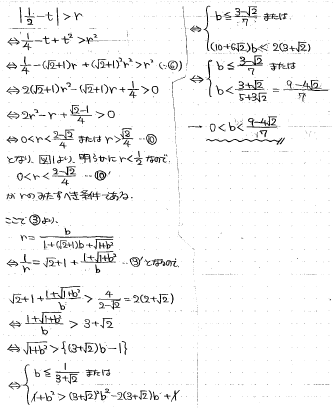 |1/2 - t| > r
⇔ 1/4 - t + t² > r²
⇔ 1/4 - (√2+1)r + (√2+1)²r² > r² (∵⑥)
⇔ 2(√2+1)r² - (√2+1)r + 1/4 > 0
⇔ 2r² - r + (√2-1)/4 > 0
⇔ 0 < r < (2-√2)/4 または r > √2/4 …⑩
となり、図1より、明らかに r < 1/2 なので、
0 < r < (2-√2)/4 …⑩'
が rのみたすべき条件である。
ここで③より、
r = b/(1+(√2+1)b+√(1+b²))
⇔ 1/r = √2+1 + (1+√(1+b²))/b …③' となるので、
√2+1 + (1+√(1+b²))/b > 4/(2-√2) = 2(2+√2)
⇔ (1+√(1+b²))/b > 3+√2
⇔ √(1+b²) > {(3+√2)b-1}
⇔ { b ≦ 1/(3+√2) または
1+b² > (3+√2)²b² - 2(3+√2)b + 1
⇔ { b ≦ (3-√2)/7 または
(10+6√2)b < 2(3+√2)
⇔ { b ≦ (3-√2)/7 または
b < (3+√2)/(5+3√2) = (9-4√2)/7
→ 0 < b < (9-4√2)/7